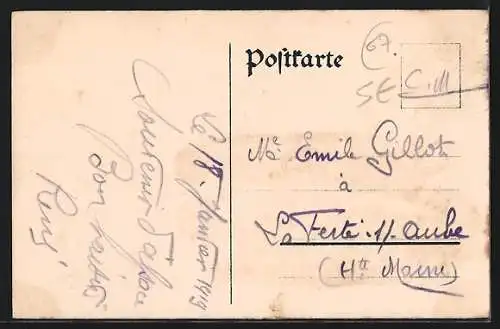 Postkarte
67.
SE
C.M
Le 18. Janvier 1919
Souvenir d'Alsace
Bon baiser
René
Mr Emile Gillot
à
La Ferté s/ Aube
(Hte Marne)